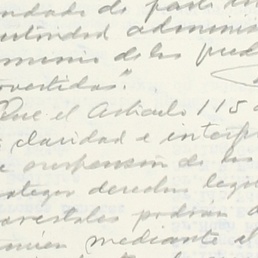 ndado de parte in
utoridad administ
ominio de los pred
nvertidos".
Que el Artículo 115 d
claridad e interpr
e suspensión de los
oteger derechos legít
orestales podrán
mediante el